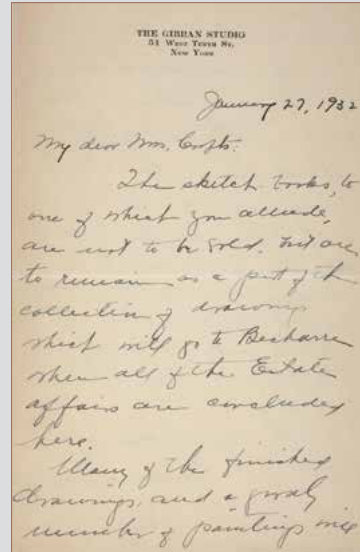 THE GIBRAN STUDIO
51 West Tenth St.
New York
January 27, 1932
My dear Mrs. Crofts:
The sketch books, to
one of which you allude,
are not to be sold. but are
to remain as a part of the
collection of drawings
which will go to Becharre
when all of the Estate
affairs are concluded
here.
Many of the finished
drawings, and a
number of paintings will